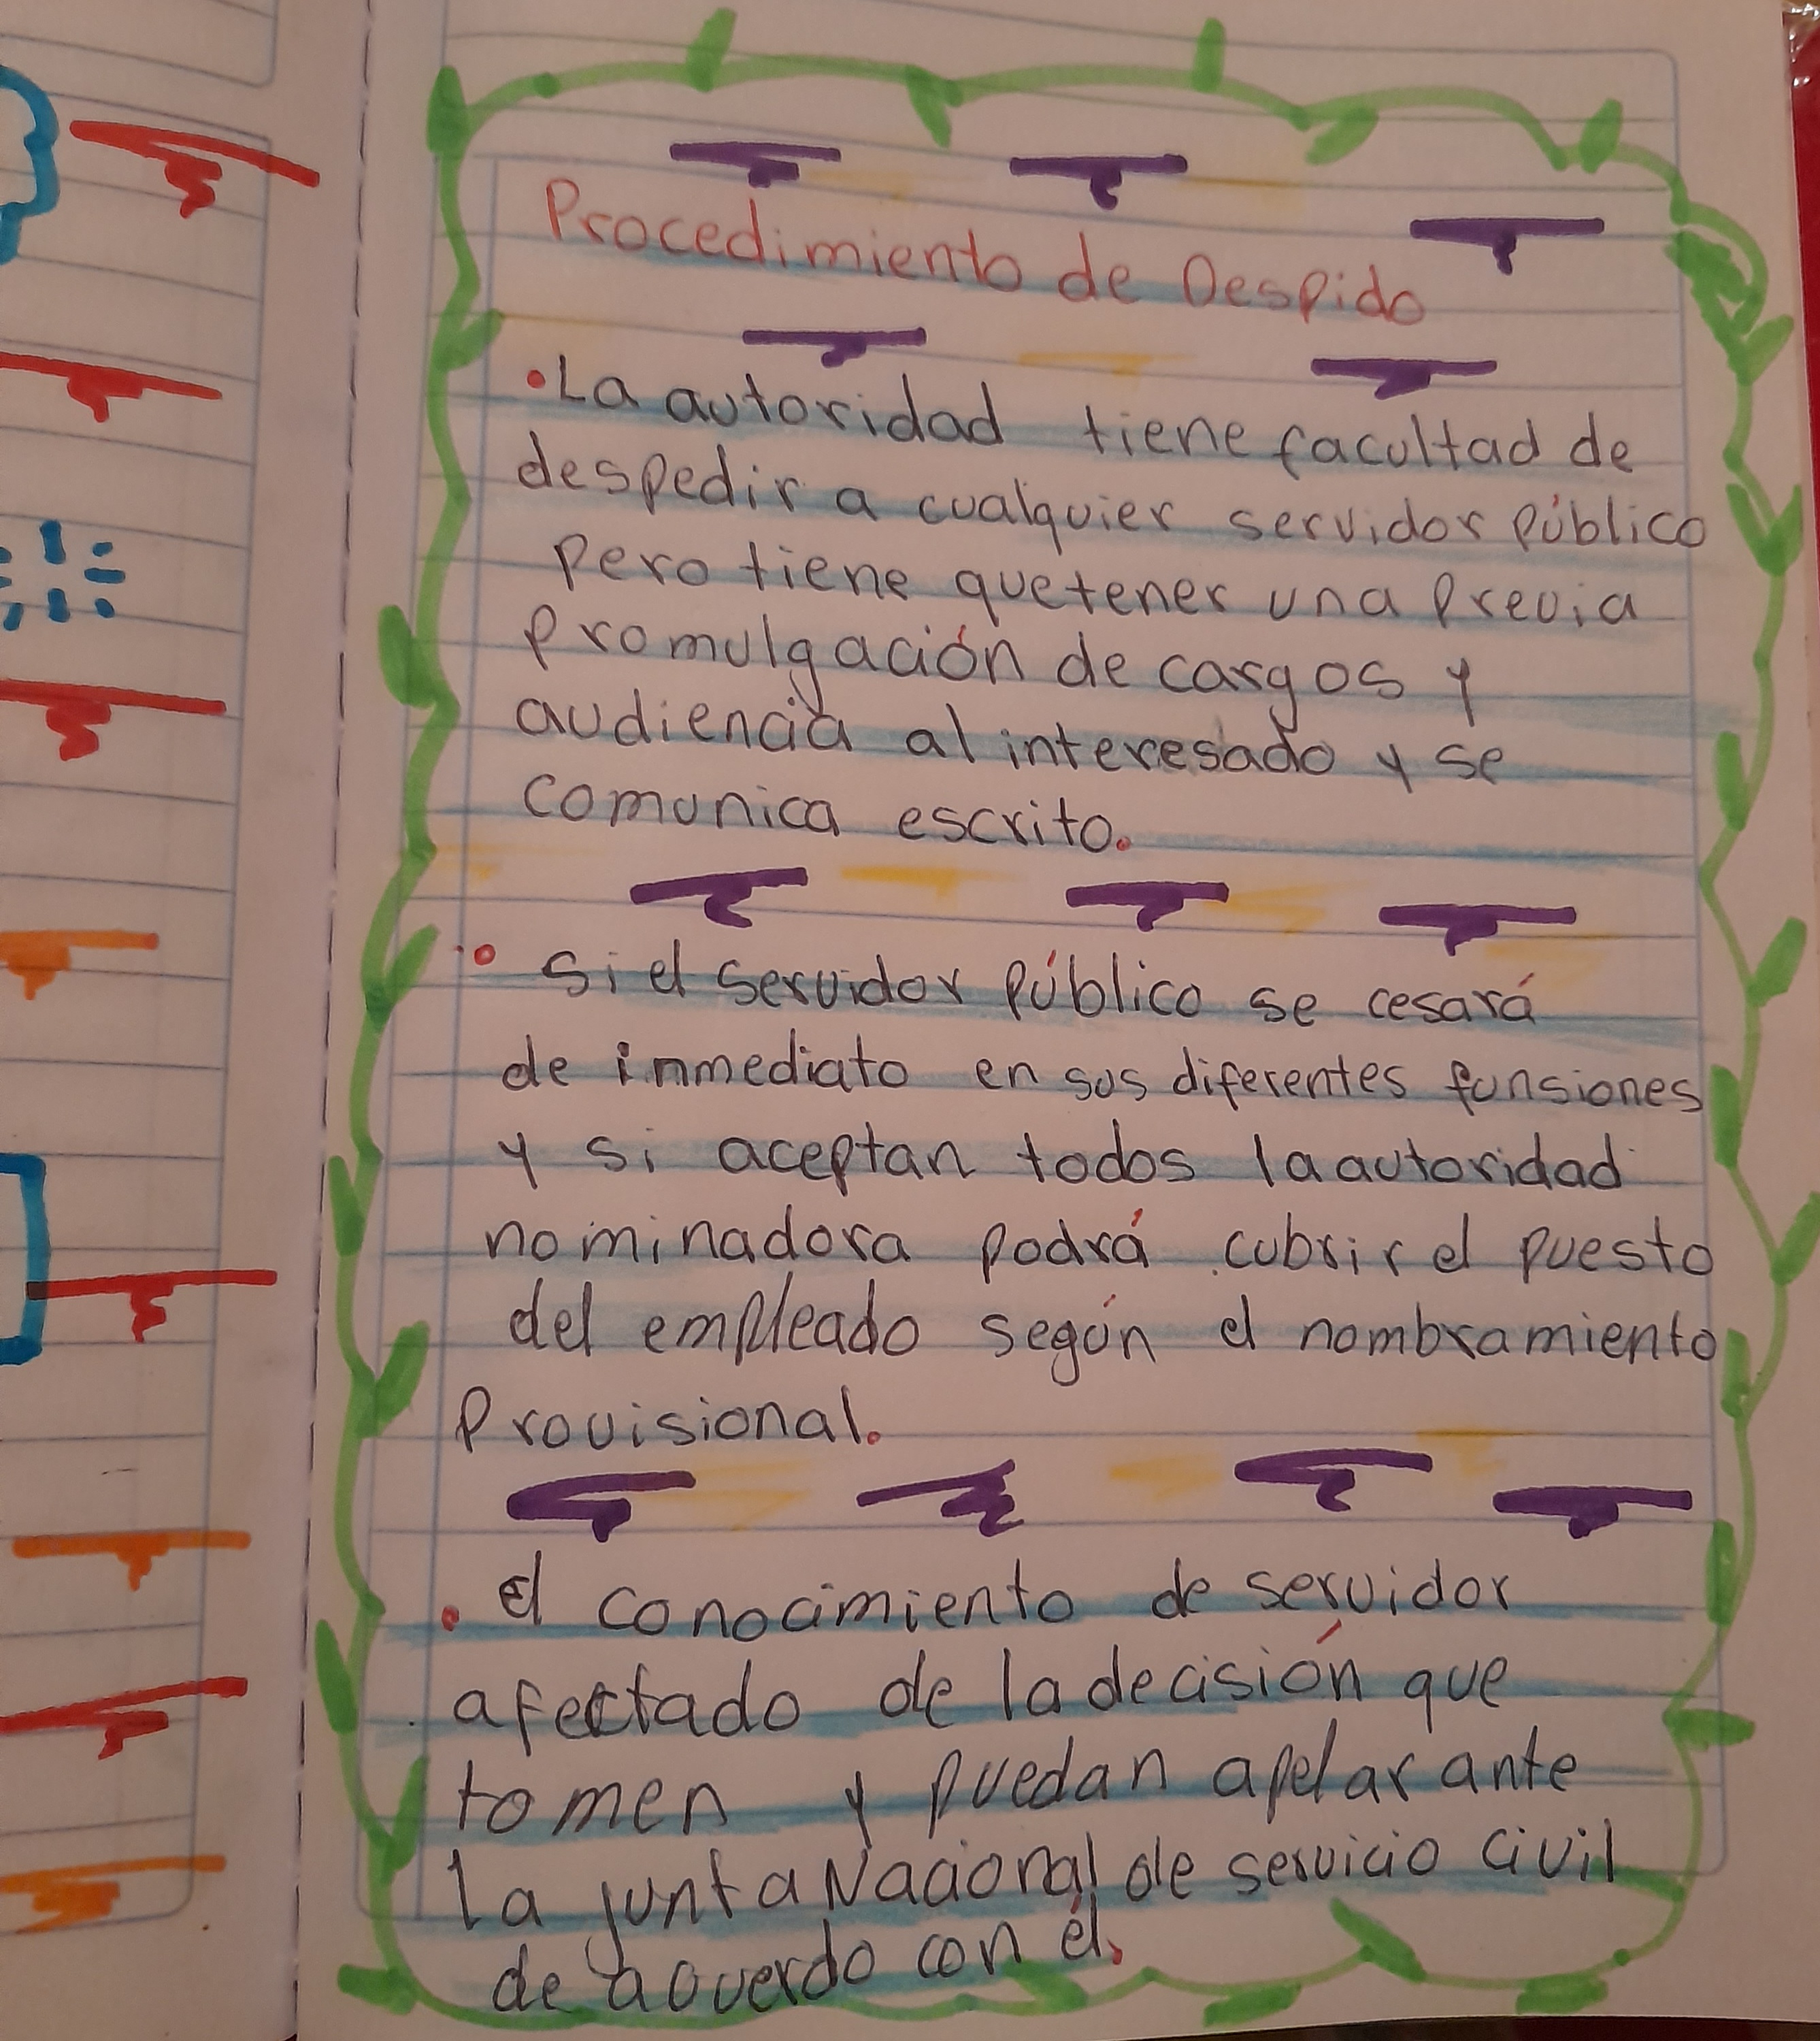 Procedimiento de Despido
• La autoridad tiene facultad de
despedir a cualquier servidor Público
Pero tiene que tener una Previa
Promulgación de cargos y
audiencia al interesado y se
comunica escrito.
• Si el servidor Público se cesará
de inmediato en sus diferentes funsiones
y si aceptan todos la autoridad
nominadora podrá cubrir el puesto
del empleado según el nombramiento
Provisional.
• el conocimiento de servidor
afectado de la decisión que
tomen y puedan apelar ante
la junta Nacional de servicio civil
de acuerdo con él.